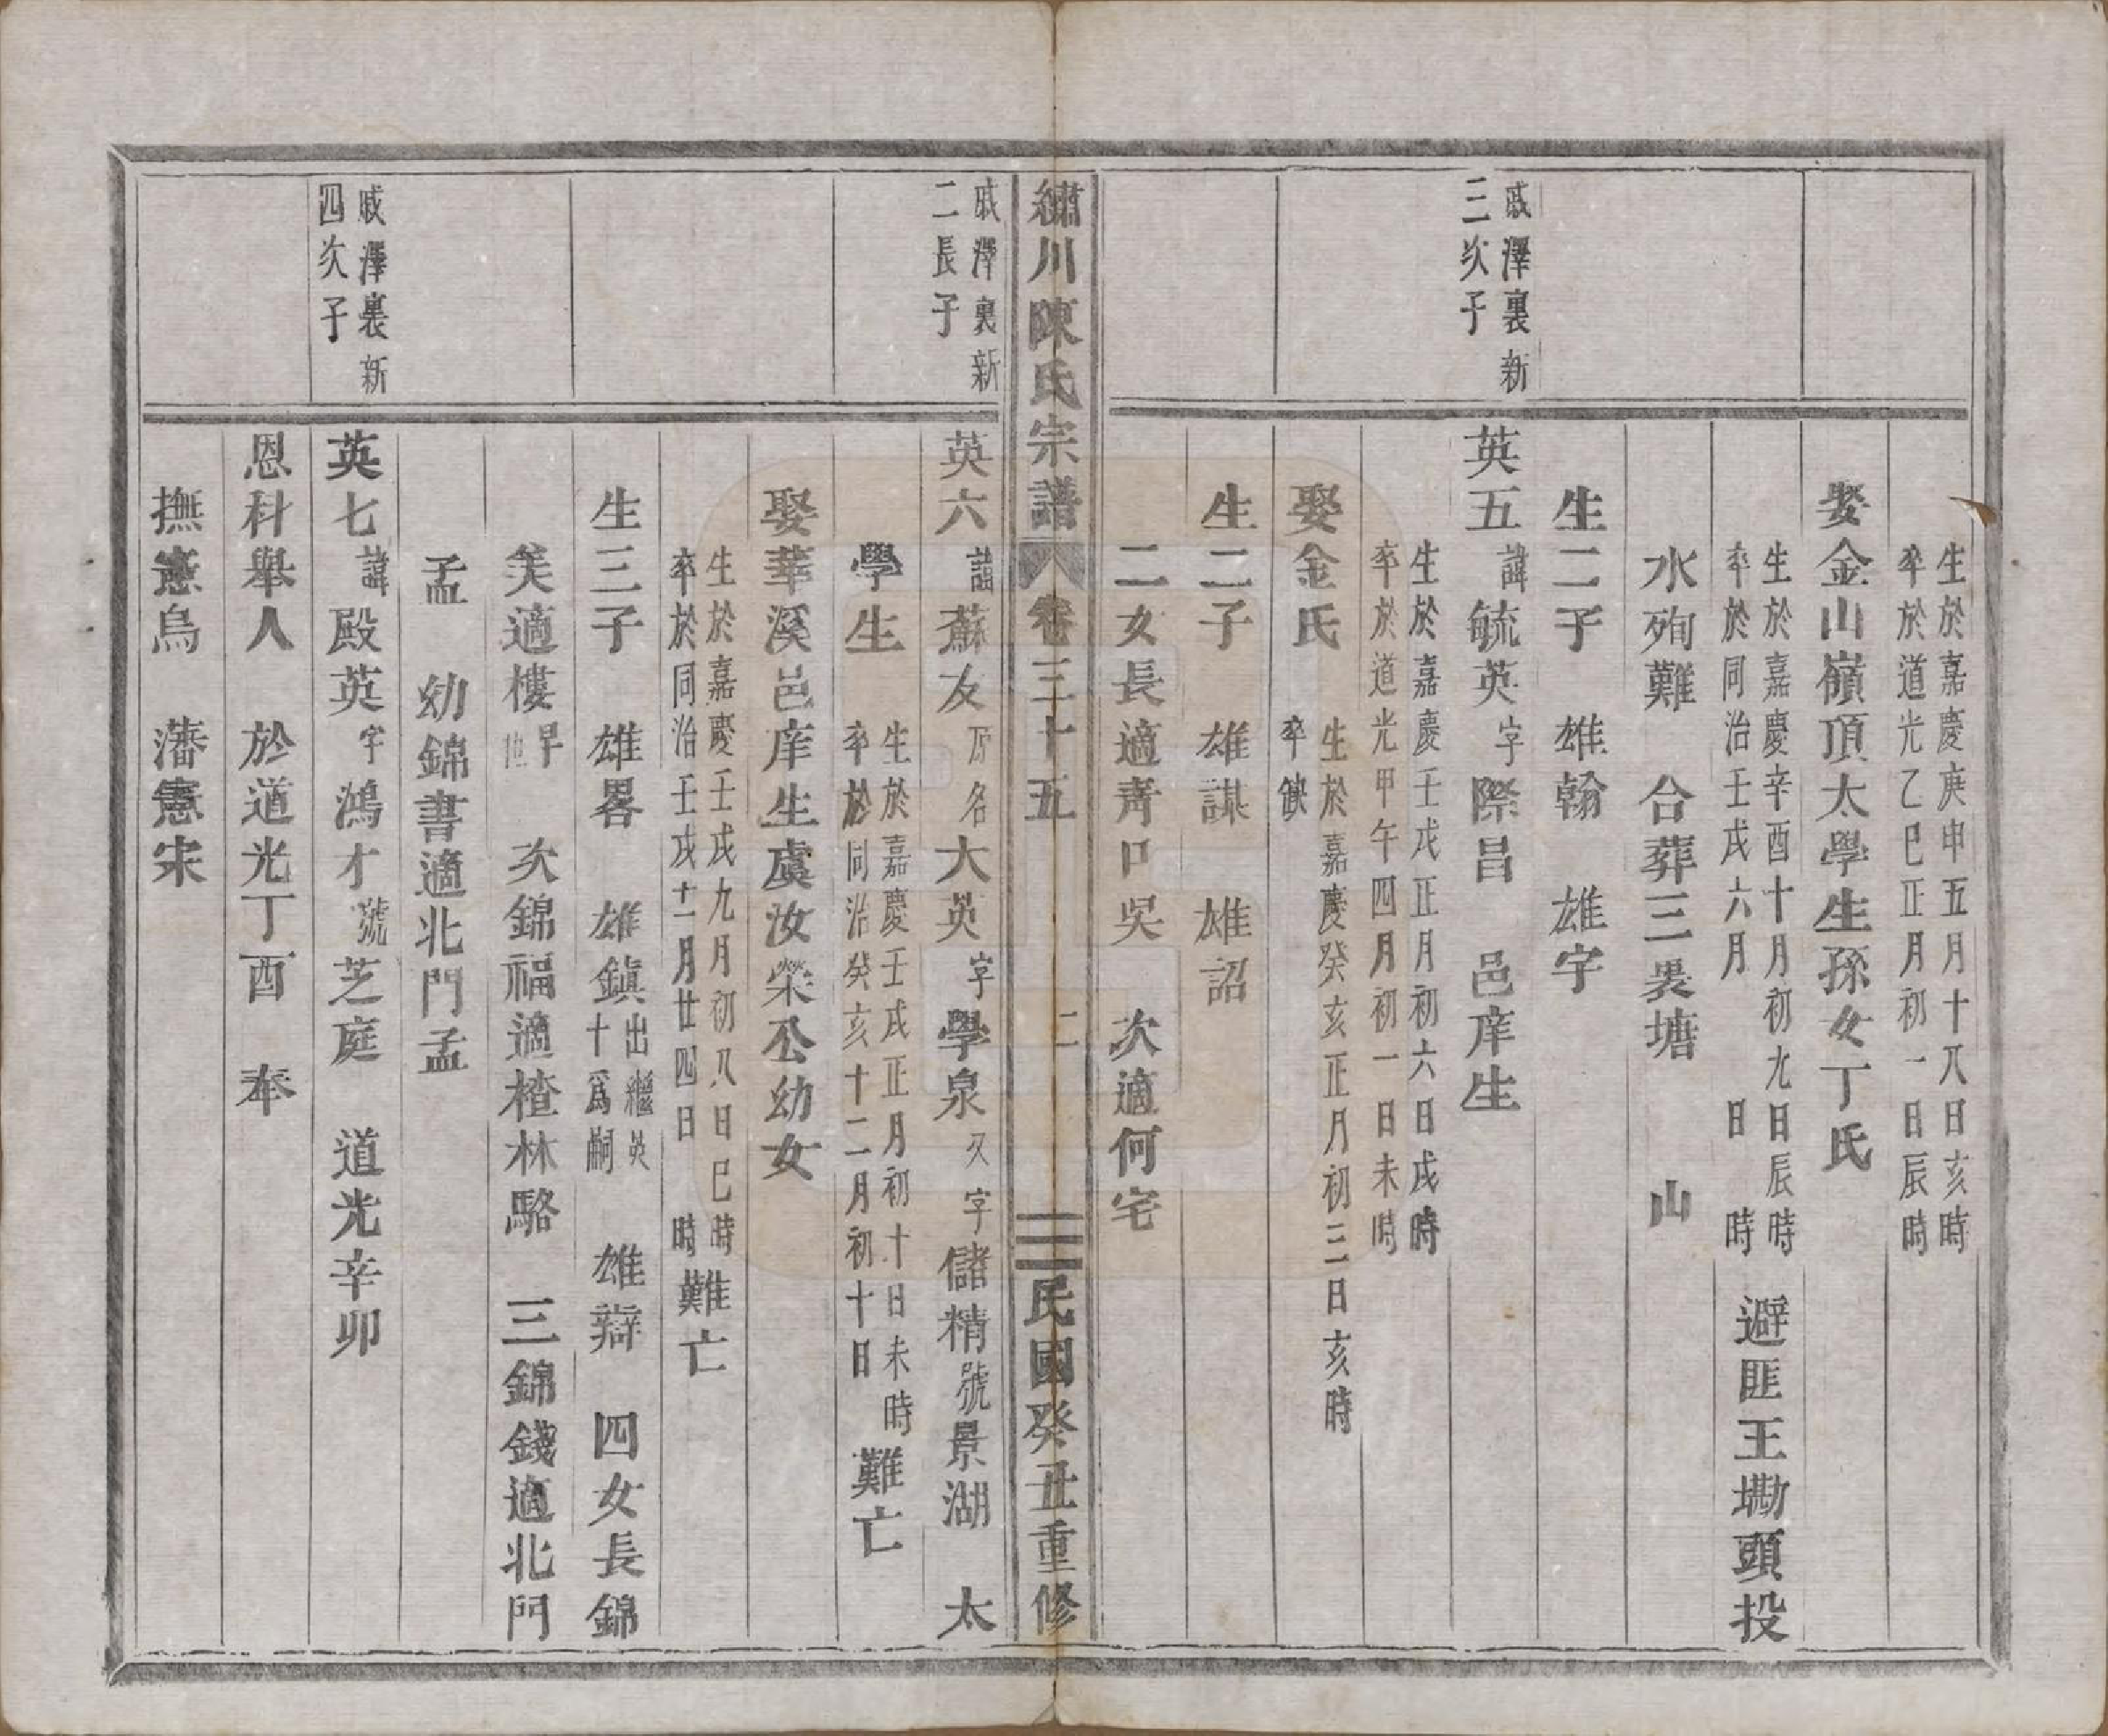 生於嘉慶庚申五月十八日亥時
卒於道光乙巳正月初一日辰時
娶金山嶺頂太學生孫女丁氏
生於嘉慶辛酉十月初九日辰時
卒於同治壬戌六月　日　時
避匪王墈頭投
水殉難　合葬三畏塘　山
生二子　雄翰　雄字
戚澤裏新
三次子
英五諱毓英字際昌　邑庠生
生於嘉慶壬戌正月初六日戌時
卒於道光甲午四月初一日未時
娶金氏
生於嘉慶癸亥正月初三日亥時
卒缺
生二子　雄謀　雄詔
二女長適青口吳　次適何宅
繡川陳氏宗譜　卷三十五　二　民國癸丑重修
戚澤裏新
二長子
英六諱蘇友原名大英字學泉又字儲精號景湖　太
學生
生於嘉慶壬戌正月初十日未時
卒於同治癸亥十二月初十日
難亡
娶華溪邑庠生虞汝榮公幼女
生於嘉慶壬戌九月初八日巳時
卒於同治壬戌十二月廿四日　時
難亡
生三子　雄畧　雄鎮出繼英十爲嗣　雄辯　四女長錦
美適樓早世　次錦福適楂林駱　三錦錢適北門
孟　幼錦書適北門孟
戚澤裏新
四次子
英七諱殿英字鴻才號芝庭　道光辛卯
恩科舉人　於道光丁酉　奉
撫憲烏　藩憲宋